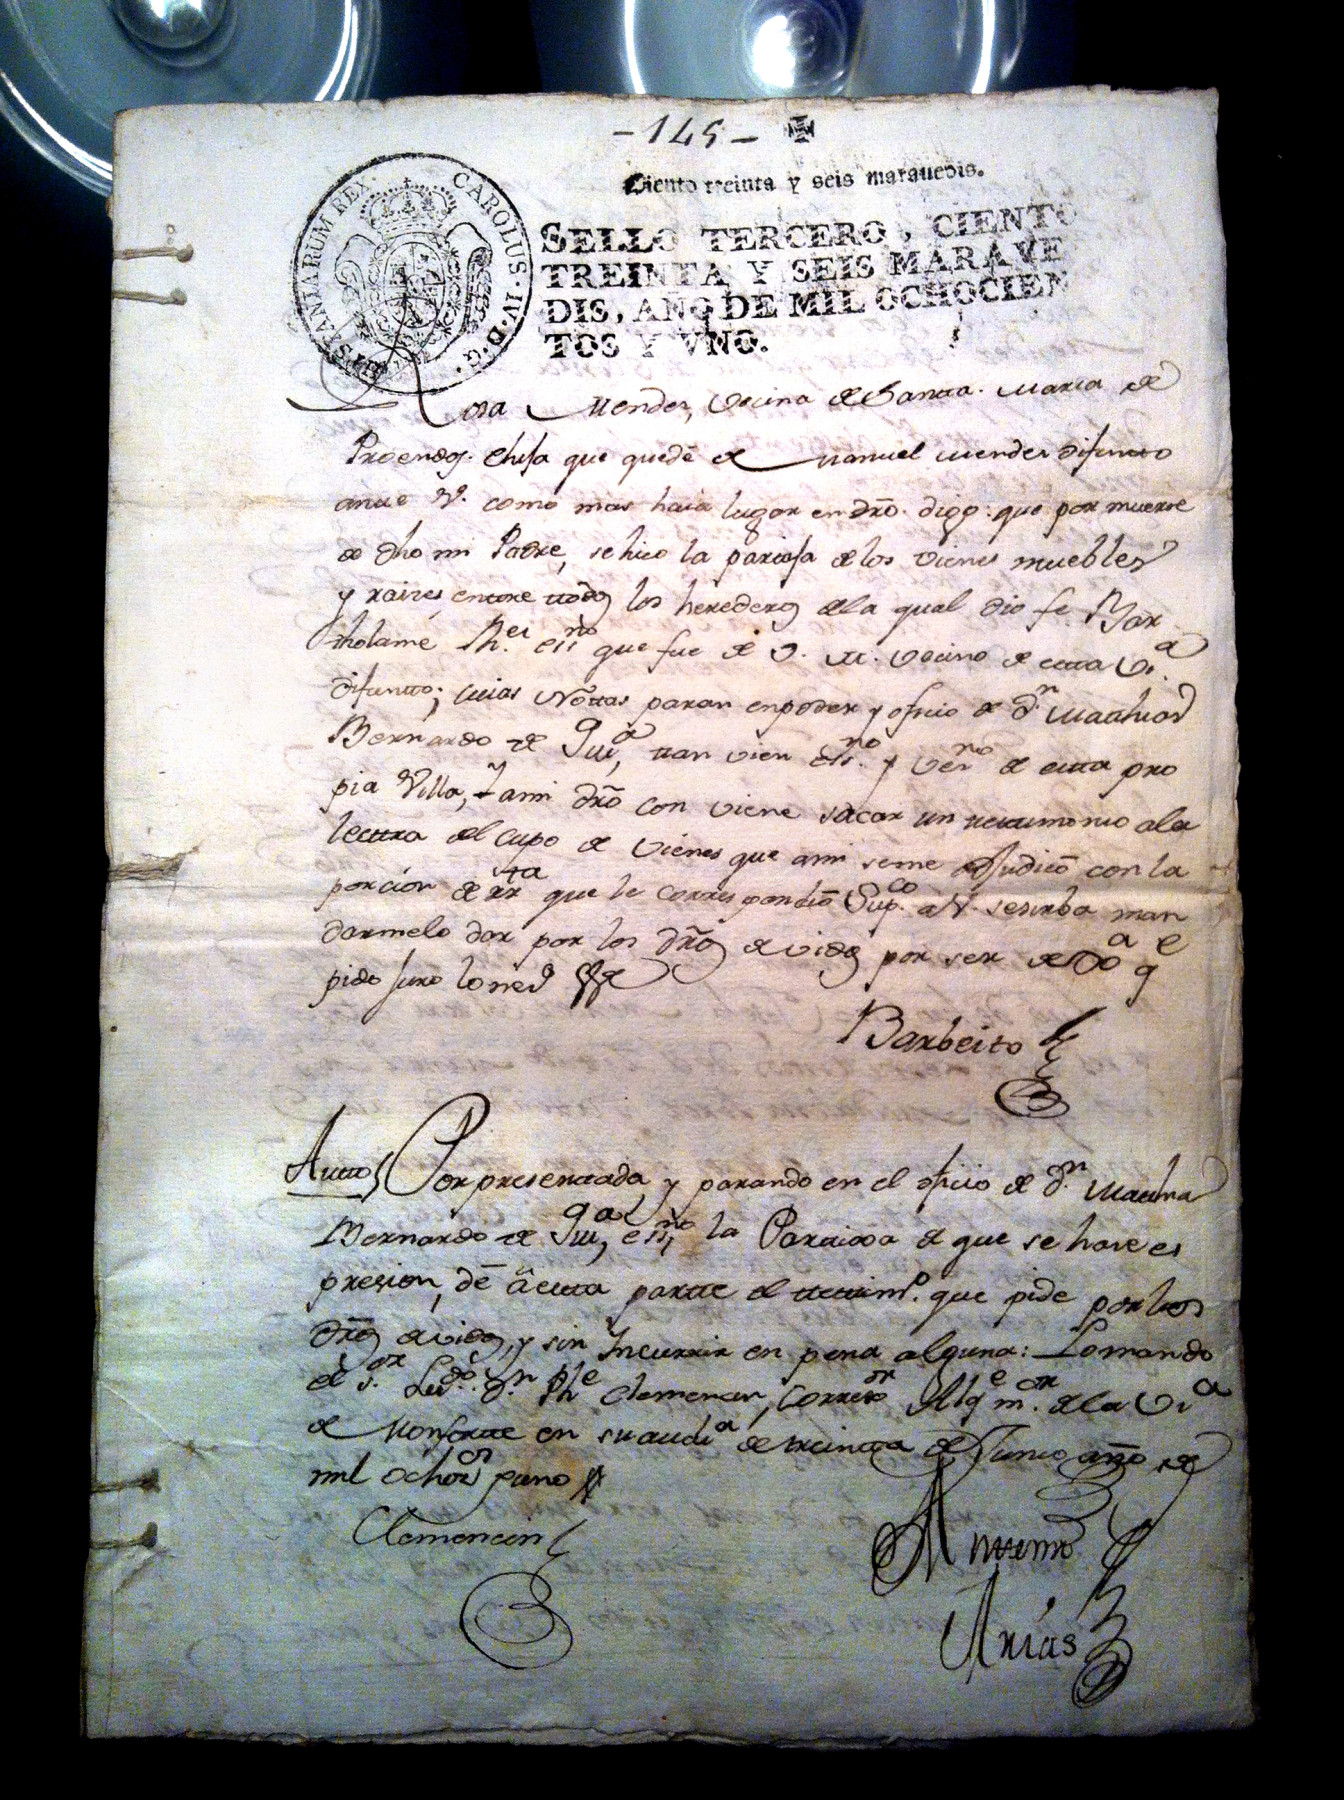 - 145 - ✠
Ciento treinta y seis marauedis.
SELLO TERCERO, CIENTO
TREINTA Y SEIS MARAVE
DIS, AÑO DE MIL OCHOCIEN
TOS Y VNO.
CAROLUS·IV·D·G· HISPANIARUM REX
Rosa Mendez, Vecina de Santta. Maria de
Proendos. Ehija que quedè de Manuel Mendez difuntto
antte V. como mas haia lugar en dro. digo. que por muertte
de dho mi Padre, se hico la parttija de los vienes muebles
y raizes enttre ttodos los herederos de la qual dio fe. Bar
tholamè Rs. essno que fue de S. M. Vecino de estta Va.
difuntto; cuias Nottas paran en poder y oficio de Dn. Matthias
Bernardo de Guia, ttan vien essno. y Vezno de estta pro
pia Villa, Y ami dro con viene sacar un testtimonio ala
lecttra del cupo de vienes que ami seme adjudicò con la
porcion de rta que le correspondiò Supco. a V. se sirba man
darmelo dar por los dros devidos por ser de Jusa qe
pido Juro lo nesº &a
Barbeito
Autto Por presenttada, y parando en el oficio de Dn. Matthias
Bernardo de Guia, essno la Parttixa de que se hace es
presion, dè à estta partte el testtimo. que pide por los
dros devidos, y sin Incurrir en pena alguna: Lo mando
el Sor. Licdo. Dn Phe Clemencin, Corretor Alqe mor. de la Va
de Monfortte en su audia de treintta de Junio año de
mil ochozos y uno
Clemencin
Anttemi
Arias